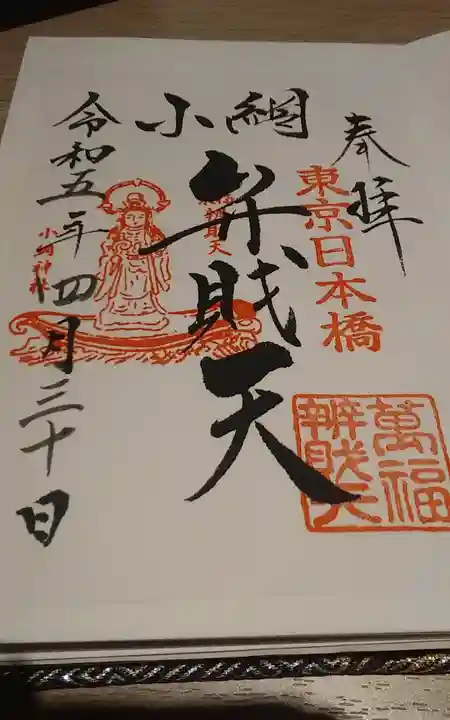 奉拝
東京日本橋
萬福
辨財天
小網
弁財天
小網神社
令和五年四月三十日